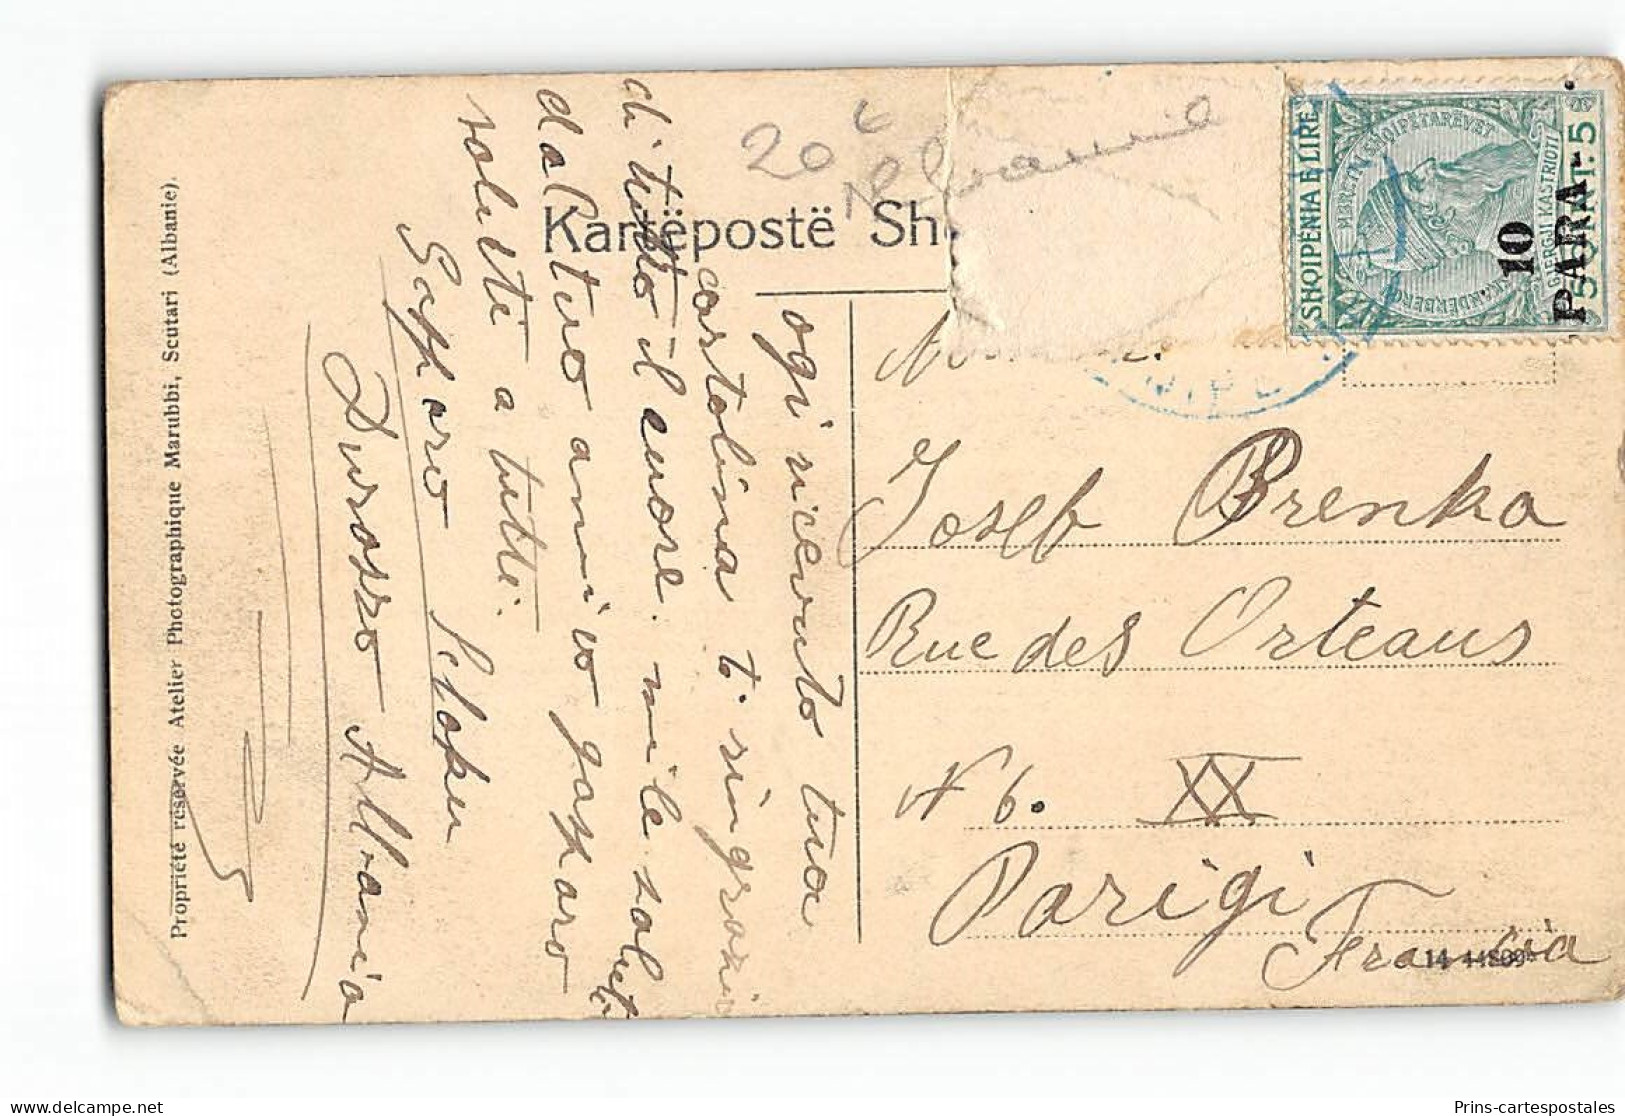 Propriété réservée Atelier Photographique Marubbi, Scutari (Albanie).
20 €
Kartëpostë Sh
"SHQIPENIA E LIRE"
MBRETI I SHQIPETARËVET
GJERGJI KASTRIOTI
SKANDERBERG
5 QINT. 5
10
PARA
ogi ricevuto tua
cartolina ti ringrazio
di tutto il cuore. mile salut
dal tuo amivo gasparo
saluti a tutti.
Gasparo
Durazzo Allbania
Josef Brenka
Rue des Orteaus
N 6. XX
Parigi
Francia